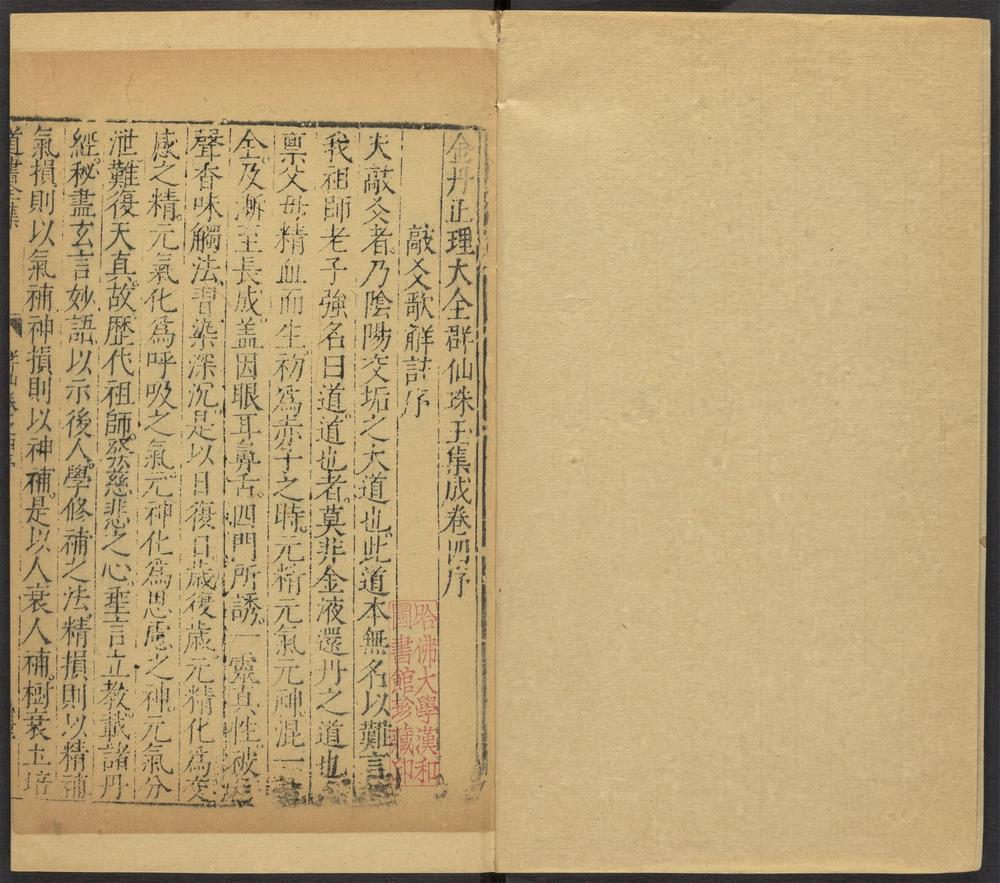 金丹正理大全群仙珠玉集成卷四序
敲爻歌解註序
夫敲爻者。乃陰陽交垢之大道也。此道本無名以難言
我祖師老子強名曰道。道也者。莫非金液還丹之道也
禀父母精血而生。初爲赤子之時。元精元氣元神。混一
全。及漸至長成。盖因眼耳鼻舌。四門所誘。一靈真性。被
聲香味觸法。習染深沉。是以日復日歲復歲。元精化爲交
感之精。元氣化爲呼吸之氣。元神化爲思慮之神。元氣分
泄難復天真。故歷代祖師。發慈悲之心。垂言立教。載諸丹
經。秘盡玄言妙語。以示後人。學修補之法。精損則以精補
氣損則以氣補神損則以神補。是以人衰人補。樹衰土培
道書全集
哈佛大學漢和
圖書館珍藏印